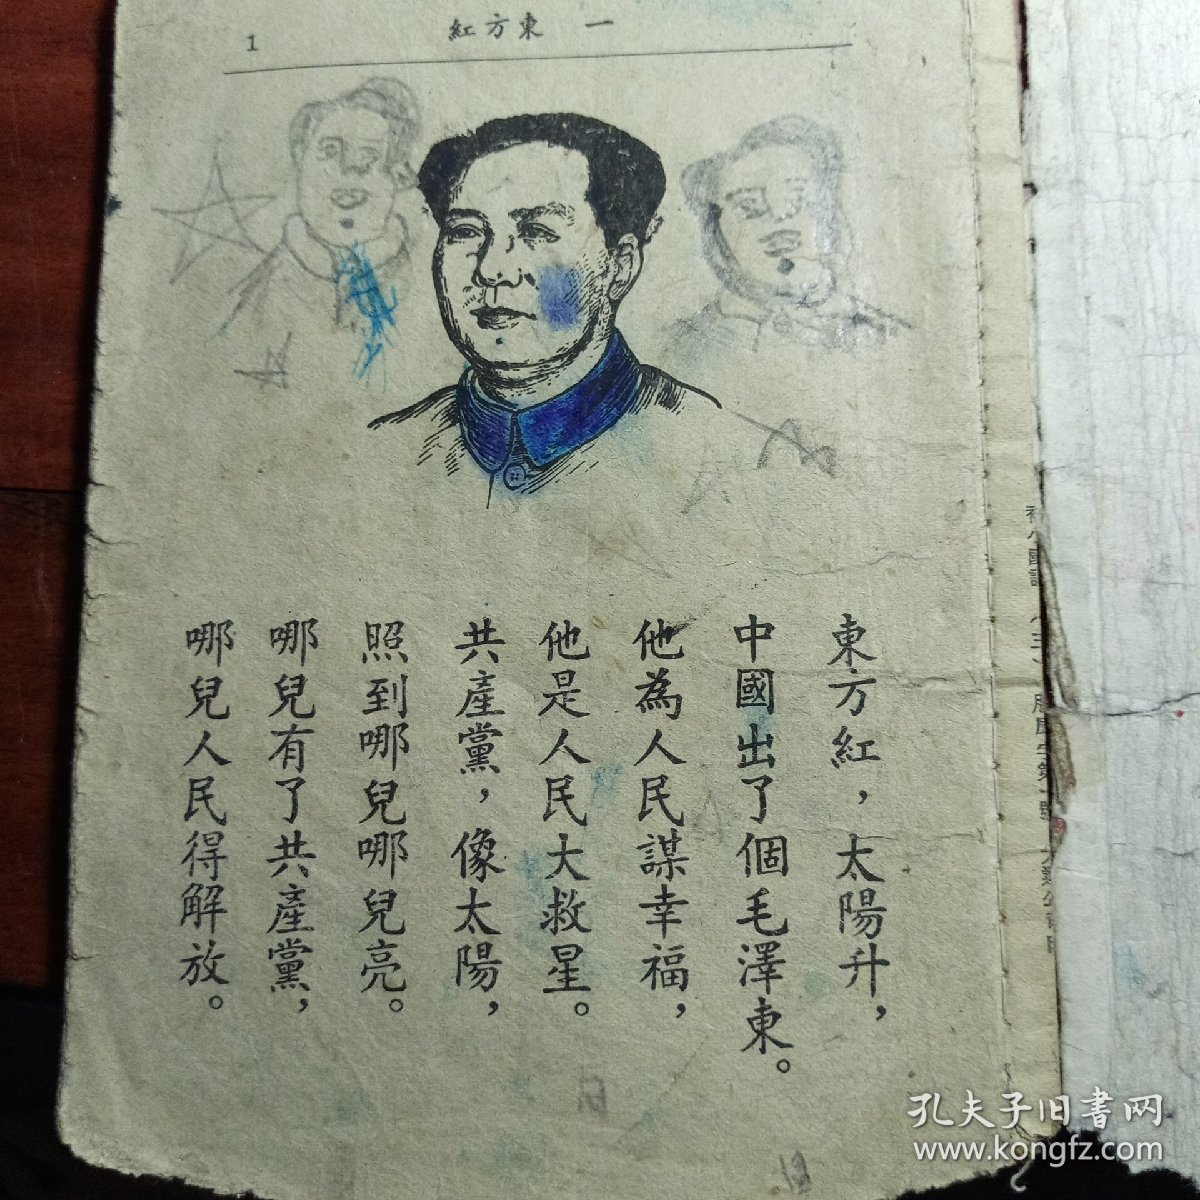 一 東方紅
1
東方紅，太陽升，
中國出了個毛澤東。
他為人民謀幸福，
他是人民大救星。
共產黨，像太陽，
照到哪兒哪兒亮。
哪兒有了共產黨，
哪兒人民得解放。
孔夫子旧书网
www.kongfz.com